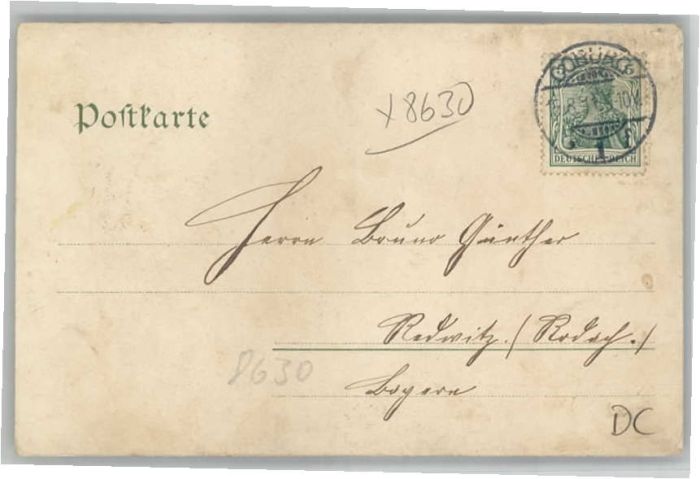 COBURG
10V.
1
DEUTSCHES REICH
x 8630
Postkarte
Herrn Bruno Günther
Redwitz./(Rodach./
8630
Bayern
DC